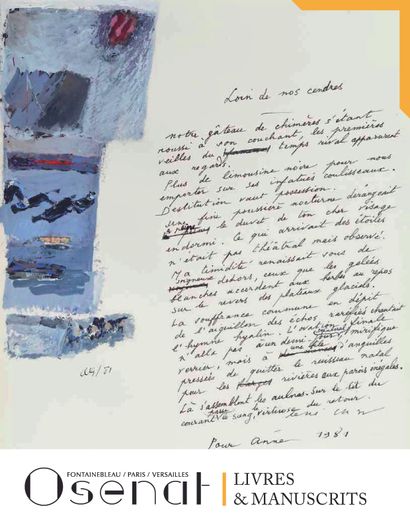 Loin de nos cendres
notre gâteau de chimères s'étant
roussi à son couchant, les premières
veilles du temps rival apparurent
aux regards.
Plus de limousine noire pour nous
emporter sur ses infatués coulisseaux.
Destitution vaut possession.
fine poussière nocturne dérangeait
le duvet de ton cher visage
endormi. Ce qui arrivait des étoiles
n'était pas théâtral mais observé.
Ma timidité renaissait vous de
soigneux dehors, ceux que les gelées
blanches accordent aux herbes au repos
sur le revers des plateaux glacials.
La souffrance commune en dépit
de l'aiguillon des échos raréfiés chantait
l'hymne hyalin. L'ovation finale
n'alla pas à un demi mirifique
verrier, mais à une d'anguilles
pressées de quitter le ruisseau natal
pour les rivières aux parois inégales.
Là s'assemblent les aulnes. Sur le lit du
courant le sang, virtuose du retour.
Pour Anne 1981
FONTAINEBLEAU / PARIS / VERSAILLES
Osenat
LIVRES
& MANUSCRITS